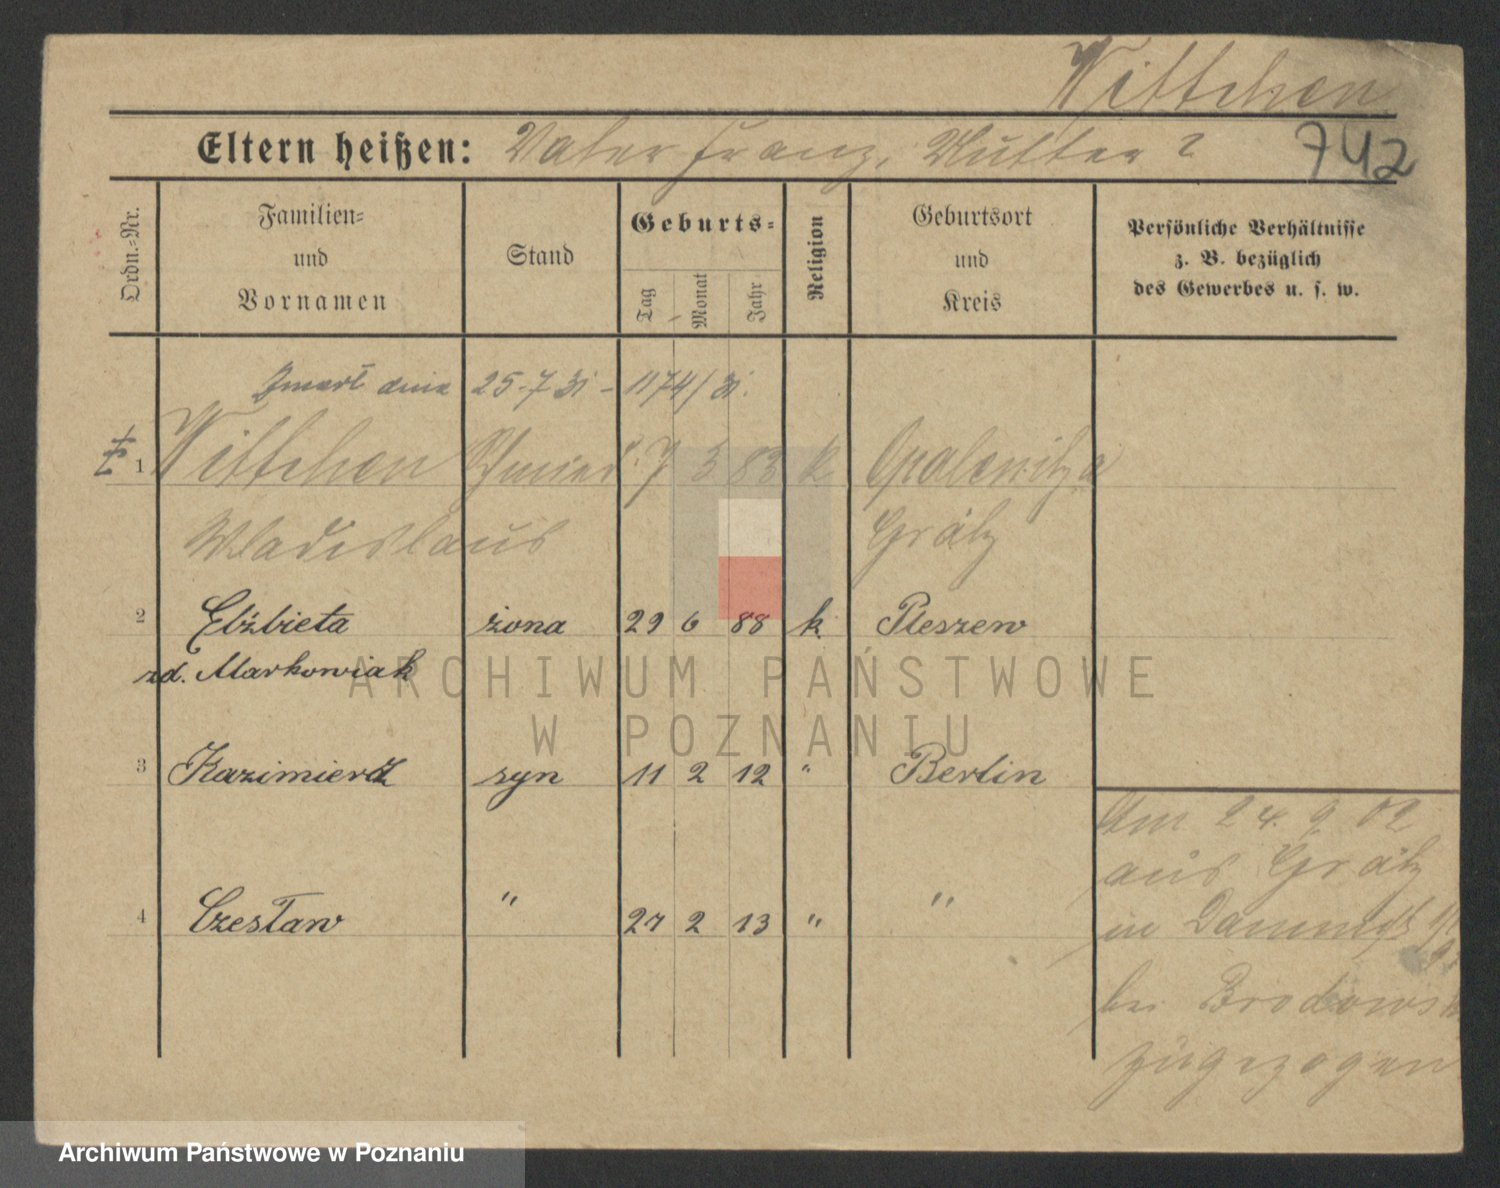 Wittchen
742
Eltern heißen: Vater Franz, Mutter ?
Ordn.=Nr.
Familien=
und
Vornamen
Stand
Geburts=
Tag
Monat
Jahr
Religion
Geburtsort
und
Kreis
Persönliche Verhältnisse
z. B. bezüglich
des Gewerbes u. s. w.
Zmarł dnia 25-7 31 - 1174/31.
1 Wittchen Schmied 7 3 83 k Opalenitza
Wladislaus Grätz
2 Elżbieta żona 29 6 88 k. Pleszew
zd. Markowiak
3 Kazimierz syn 11 2 12 " Berlin
4 Czesław " 27 2 13 " "
Am 24. 9. 02
aus Grätz
in
bei Brodowski
zugezogen
ARCHIWUM PAŃSTWOWE
W POZNANIU
Archiwum Państwowe w Poznaniu